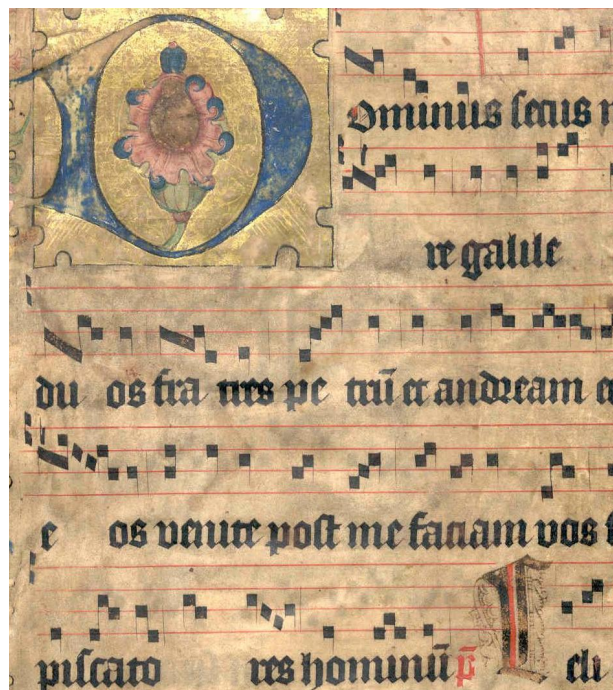 Dominus secus
re galile
du os fra tres pe trū et andream
e os venite post me faciam vos
piscato res hominū p̄ Celi